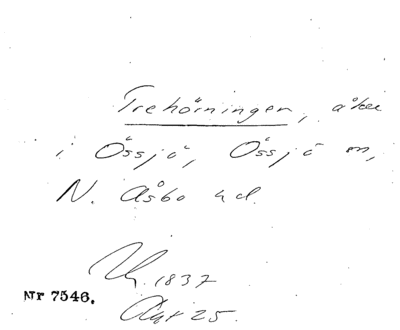 Trehörningen, åker
i Össjö, Össjö sn,
N. Åsbo hd.
Uh. 1837
Akt 25.
Nr 7546.